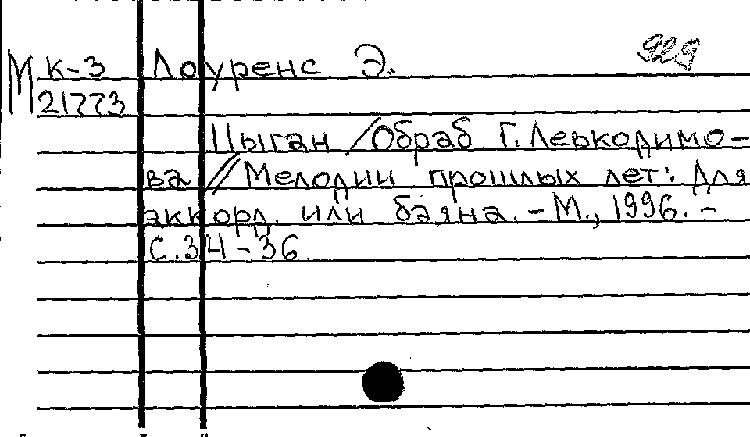 М К-3 Лоуренс Э. 929
21773
Цыган / Обраб Г. Левкодимо-
ва // Мелодии прошлых лет: Для
аккорд. или баяна. - М., 1996. -
С. 34 - 36